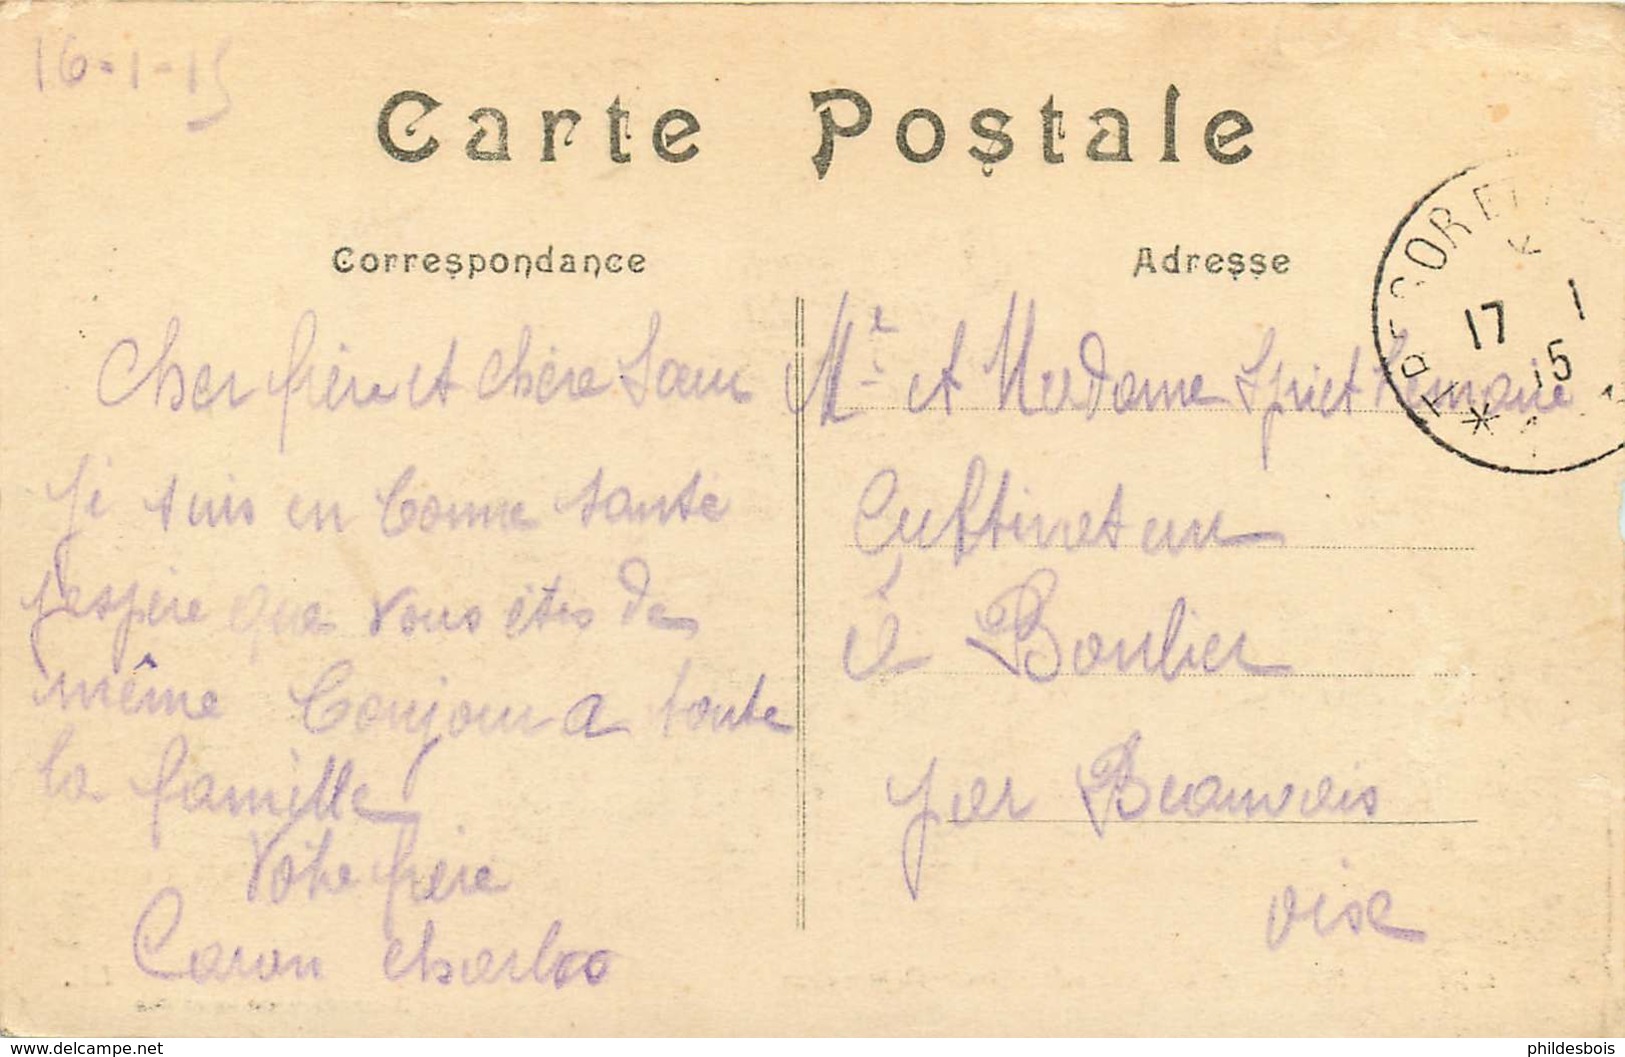 16-1-15
Carte Postale
Correspondance
Cher frère et chère Sœur
je suis en bonne santé
j'espère que vous êtes de
même bonjour a toute
la famille
Votre frère
Caron Charles
Adresse
Mr et Madame Spriet
Cultivateur
à Bonlier
par Beauvais
oise
17 1
15
phildesbois
www.delcampe.net